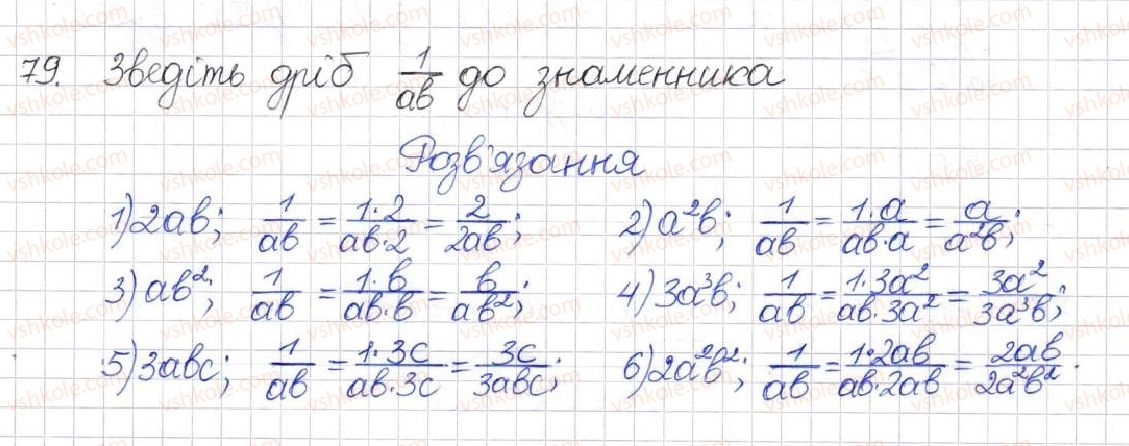 79. Зведіть дріб 1/ab до знаменника
Розв'язання
1) 2ab; 1/ab = 1·2/ab·2 = 2/2ab; 2) a²b; 1/ab = 1·a/ab·a = a/a²b;
3) ab²; 1/ab = 1·b/ab·b = b/ab²; 4) 3a³b; 1/ab = 1·3a²/ab·3a² = 3a²/3a³b;
5) 3abc; 1/ab = 1·3c/ab·3c = 3c/3abc; 6) 2a²b²; 1/ab = 1·2ab/ab·2ab = 2ab/2a²b².
vshkole.com